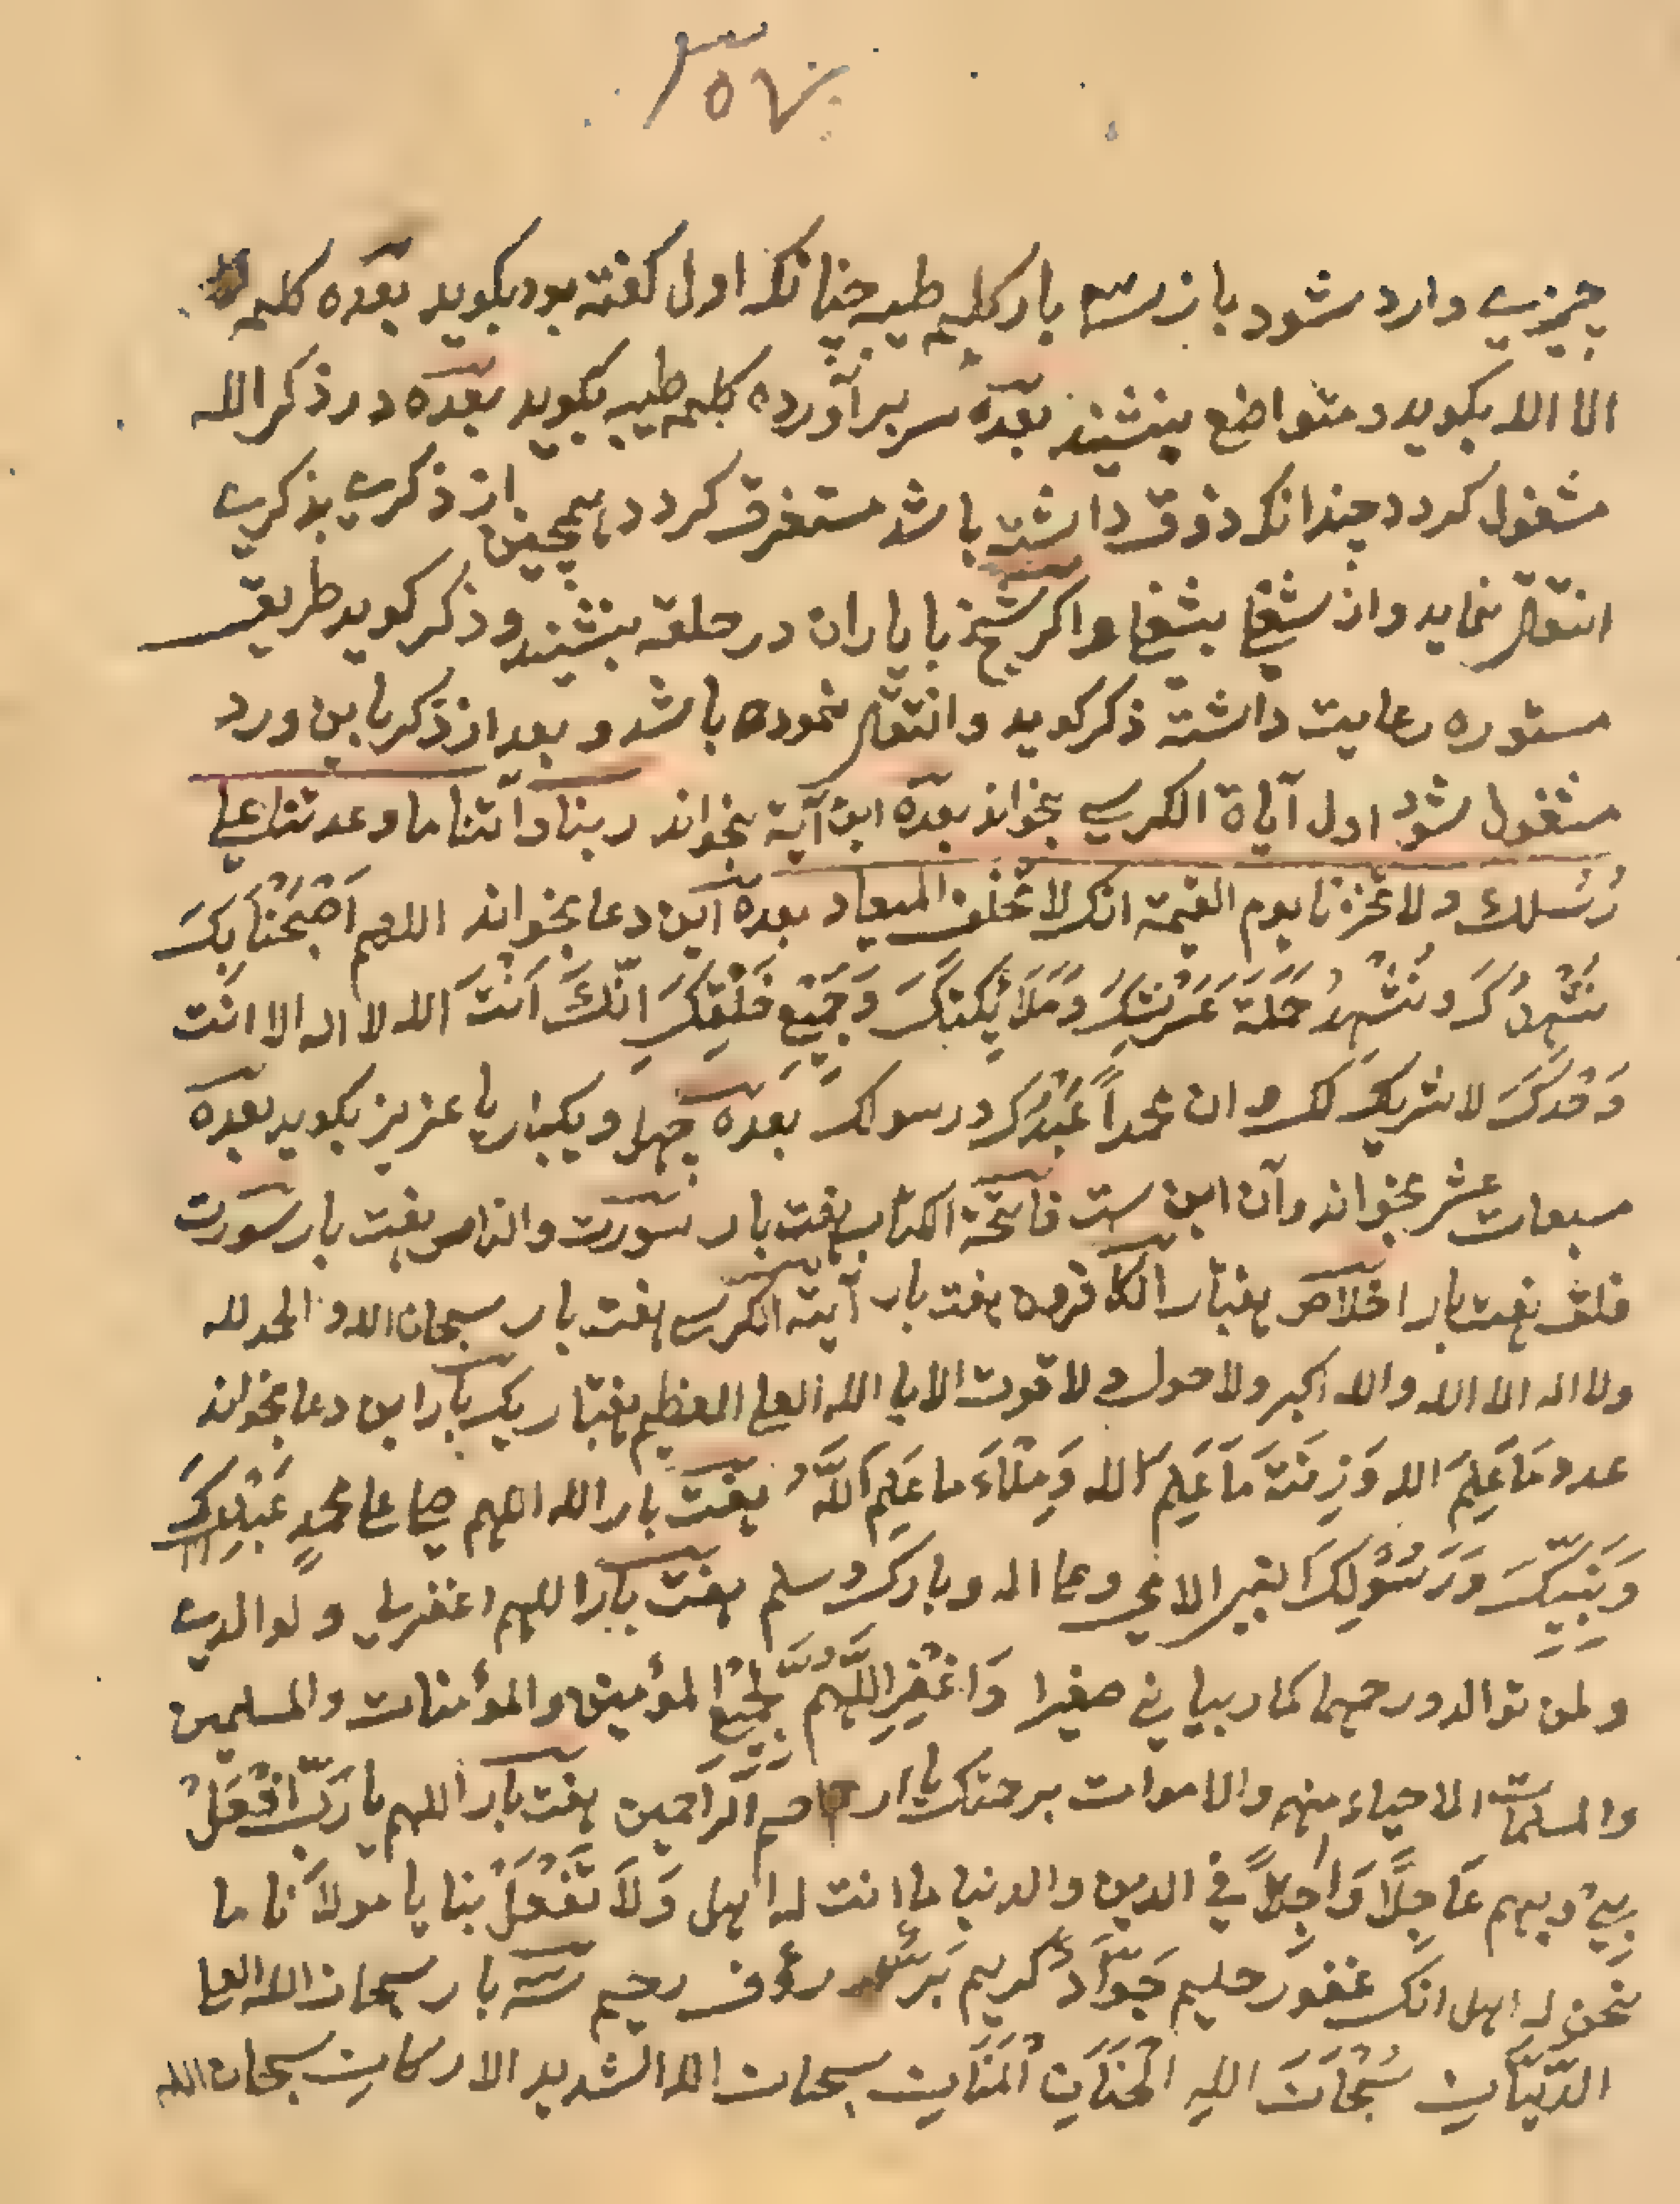 چیزی وارد شود باز سه بار کلمه طیبه چنانکه اول کفته بود بکوید بعده کلمه
الا الله بکوید و متواضع بنشیند بعده سر برآورده کلمه طیبه بکوید بعده در ذکر الله
مشغول کردد چندانکه ذوق داشته باشد مستغرق کردد همچنین از ذکری بذکری
انتقال نماید و از شغلی بشغلی و اکر شیخ با یاران در حلقه بنشیند و ذکر کوید طریقه
مستوره رعایت داشته ذکر کوید و انتقال نموده باشد و بعد از ذکر باین ورد
مشغول شود اول آیاة الکرسی بخواند بعده این آیة بخواند ربنا وآتنا ما وعدتنا علی
رُسُلك ولا تخزنا یوم القیمة انك لا تخلف المیعاد بعده این دعا بخواند اللهم اَصْبَحْنَا بِكَ
نُشْهِدُكَ وَنُشْهِدُ حَمَلَةَ عَرْشِكَ وَمَلَائِكَتِكَ وَجَمِیْعِ خَلْقِكَ اِنَّكَ اَنْتَ الله لا اله الا انت
وَحْدَكَ لا شریك لك و ان محمداً عَبْدُكَ و رسولك بعده چهل و یکبار یا عزیز بکوید بعده
مسبعات عشر بخواند و آن این ست فاتحة الکتاب هفت بار سورت والناس هفت بار سورت
فلق هفت بار اخلاص هفتبار الکافرون هفت بار آیة الکرسی هفت بار سبحان الله و الحمد لله
ولا اله الا الله والله اکبر ولا حول و لا قوت الا بالله العلی العظیم هفتبار یک بار این دعا بخواند
عدد مَا عَلِمَ الله وَزِنَةَ مَا عَلِمَ الله وَمِلْاءَ ما عَلِمَ اللهُ هفت بار الله اللهم صل علی محمدٍ عَبْدِكَ
وَنَبِیِّكَ وَرَسُوْلِكَ النبی الامی وعلی اله و بارك وسلم هفت بار اللهم اغفرلی و لوالدی
ولمن توالد و رحمهما کما ربیانی صغیرا وَاغْفِرِ اللّٰهُمَّ لِجَمِیْعِ المؤمنین والمؤمنات والمسلمین
والمسلمات الاحیاء منهم والاموات برحمتك یا ارحم الراحمین هفت بار اللهم یا رَبِّ افْعَلْ
بِیْ وبهم عَاجِلًا وَّاٰجِلًا فی الدین والدنیا ما انت له اهل وَلَا تَفْعَلْ بنا یا مولَانا ما
نحن له اهل انك غفور حلیم جَوَّادٌ کریم بَرٌّ رؤف رحیم سه بار سبحان الله العلی
الدَّیَّانِ سُبْحَانَ اللهِ الْحَنَّانِ الْمَنَّانِ سبحان الله الشدید الارکان سبحان الله